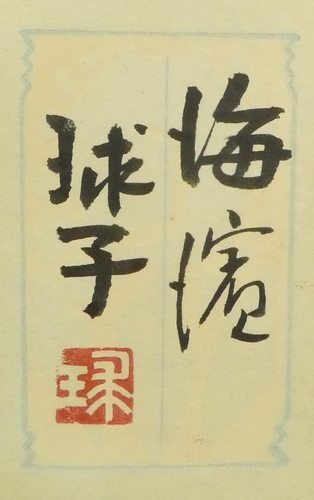 海濱
球子
球